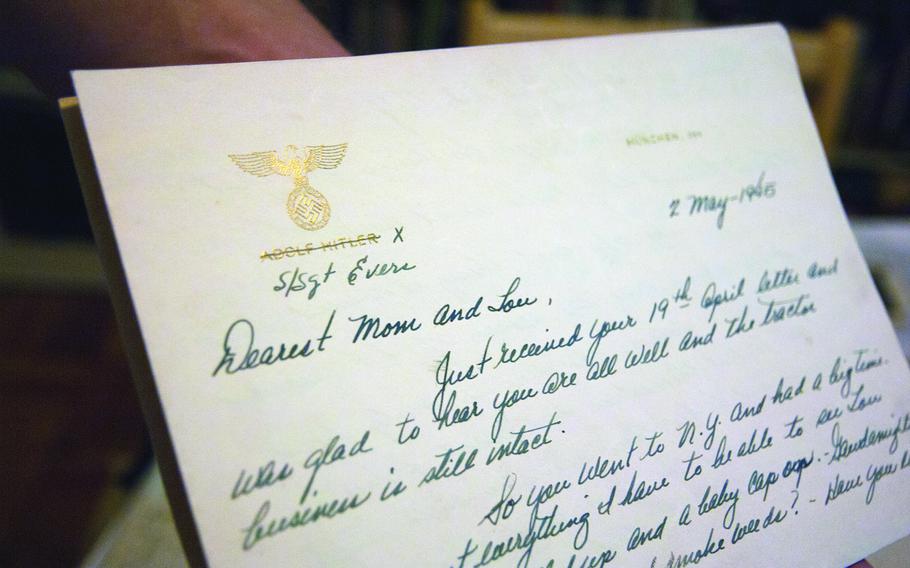 MÜNCHEN, DEN
2 May-1945
ADOLF HITLER X
S/Sgt Evers
Dearest Mom and Lou,
Just received your 19th April letter and
was glad to hear you are all well and the tractor
business is still intact.
So you went to N.Y. and had a bigtime.
everything I have to be able to see Lou
up and a baby cap on.-
smoke weeds? - Have you